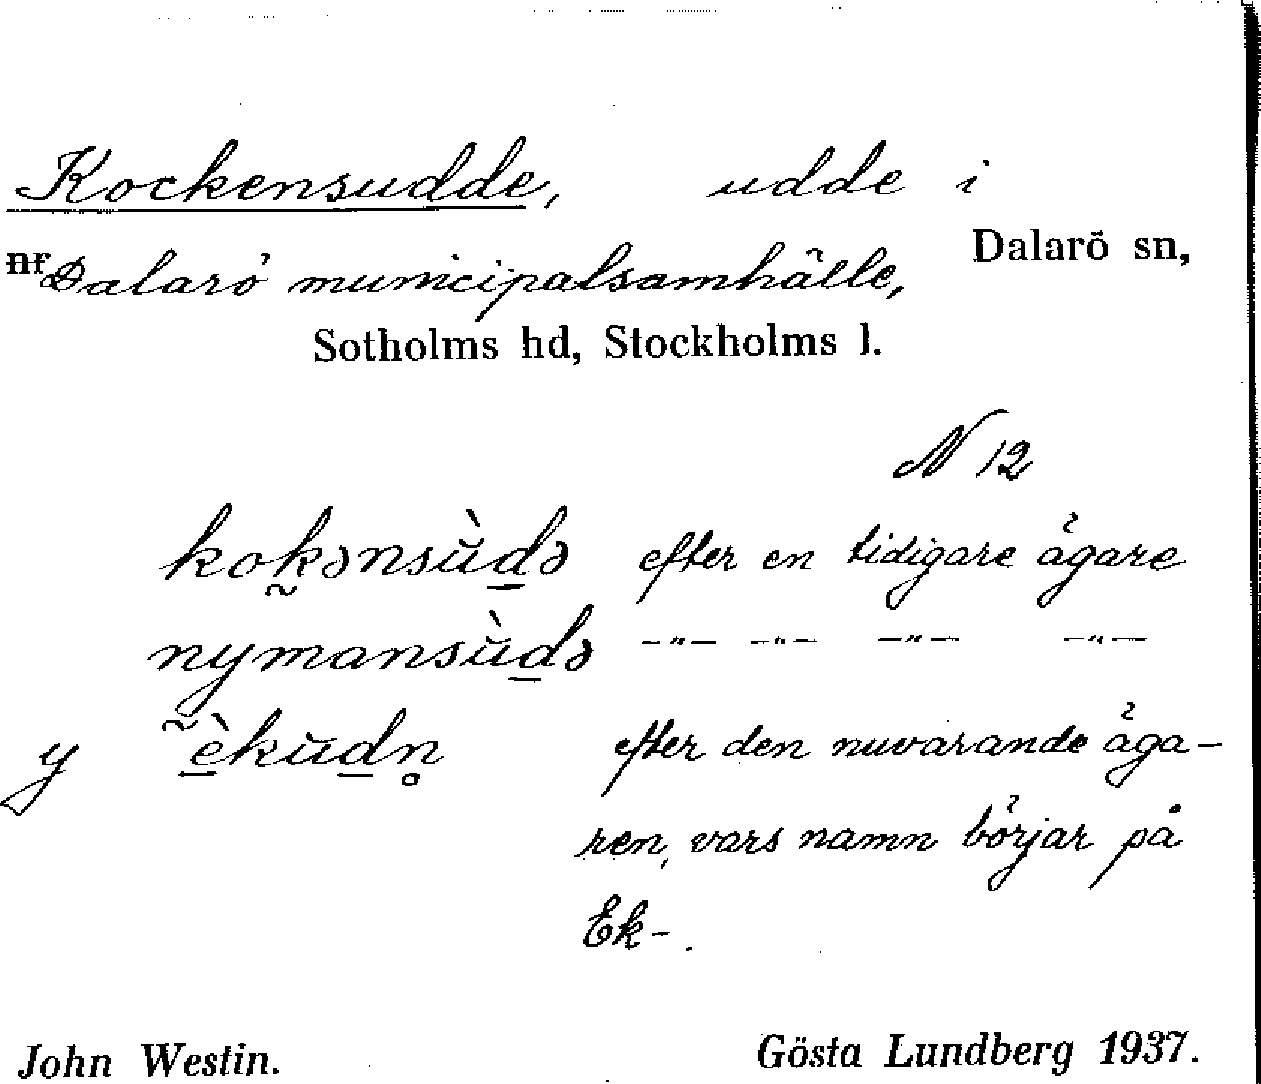 Kockensudde, udde i
Dalarö sn,
nr Dalarö municipalsamhälle,
Sotholms hd, Stockholms l.
N 12
kok̰ənsùd̲ə efter en tidigare ägare
nymansùd̲ə –"– –"– –"– –"–
y è̲kŭd̲n̥ efter den nuvarande äga–
ren, vars namn börjar på
Ek–.
John Westin. Gösta Lundberg 1937.